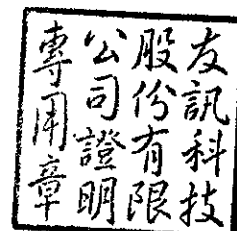 友訊科技
股份有限
公司證明
專用章